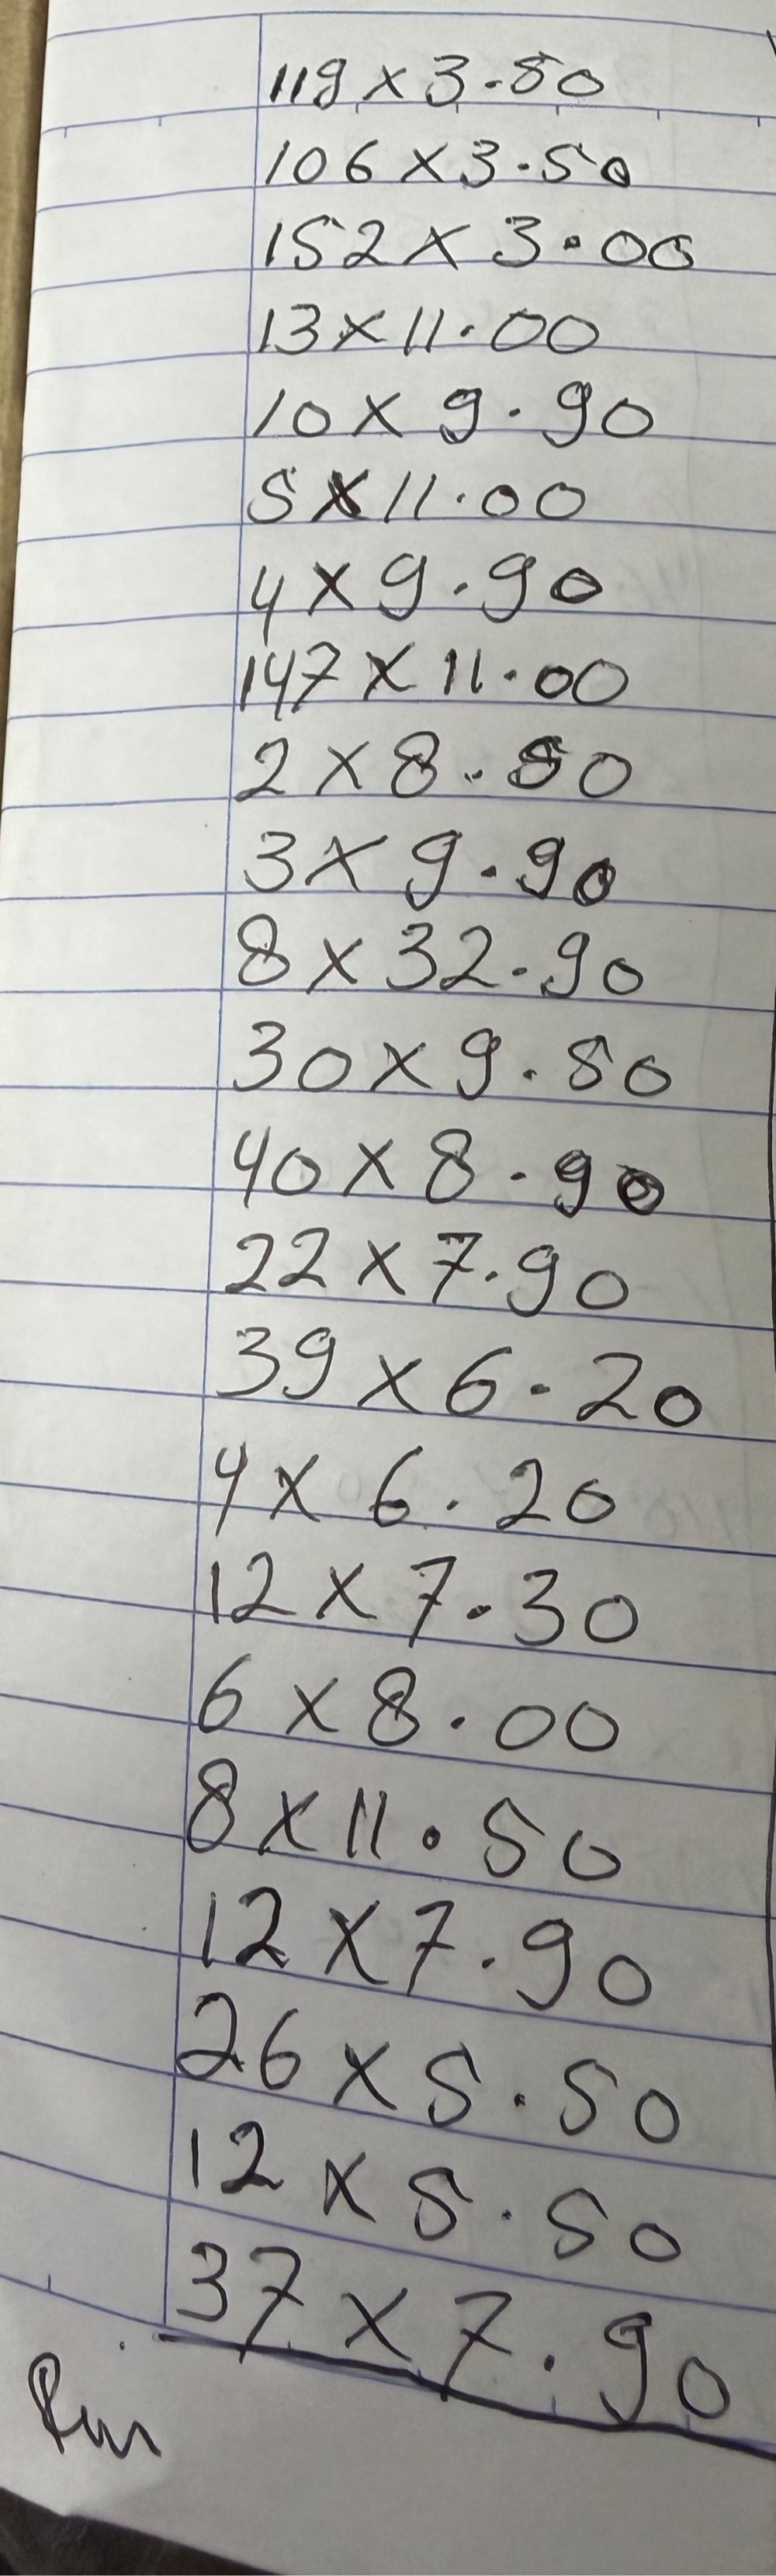 119 x 3.50
106 x 3.50
152 x 3.00
13 x 11.00
10 x 9.90
5 x 11.00
4 x 9.90
147 x 11.00
2 x 8.50
3 x 9.90
8 x 32.90
30 x 9.50
40 x 8.90
22 x 7.90
39 x 6.20
4 x 6.20
12 x 7.30
6 x 8.00
8 x 11.50
12 x 7.90
26 x 5.50
12 x 5.50
37 x 7.90